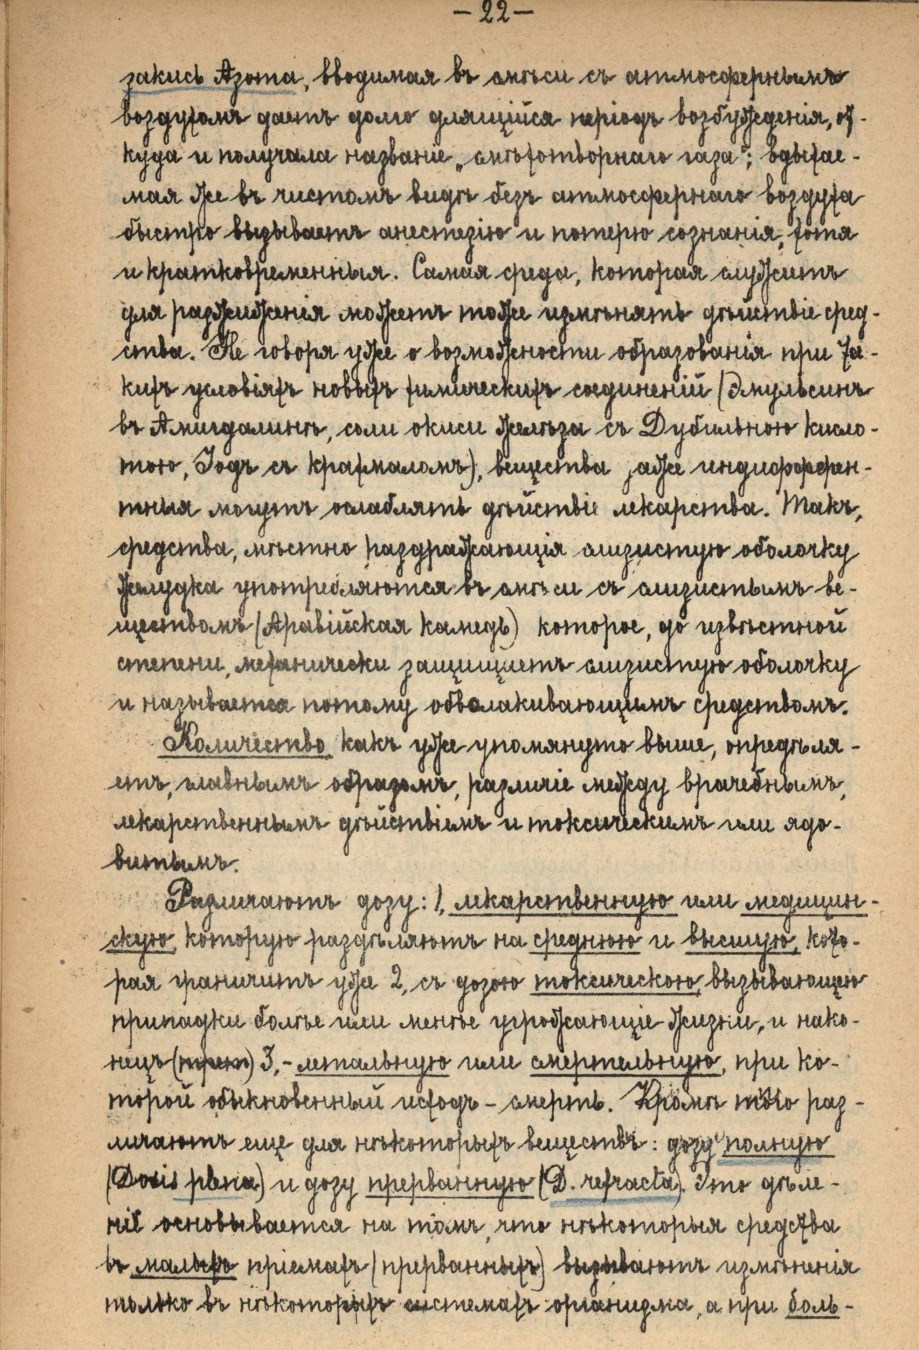 — 22 —
закись Азота, вводимая въ смѣси съ атмосфернымъ
воздухомъ даетъ долго длящійся періодъ возбужденія, от-
куда и получала названіе „смѣхотворнаго газа“; вдыхае-
мая же въ чистомъ видѣ безъ атмосфернаго воздуха
быстро вызываетъ анестезію и потерю сознанія, хотя
и кратковременныя. Самая среда, которая служитъ
для разжиженія можетъ тоже измѣнять дѣйствіе сред-
ства. Не говоря уже о возможности образованія при та-
кихъ условіяхъ новыхъ химическихъ соединеній (Эмульсинъ
въ Амигдалинѣ, соли окиси желѣза съ Дубильною кисло-
тою, Іодъ съ крахмаломъ), вещества даже индифферен-
тныя могутъ ослаблять дѣйствіе лекарства. Такъ,
средства, мѣстно раздражающія слизистую оболочку
желудка употребляются въ смѣси съ слизистымъ ве-
ществомъ (Аравійская камедь) которое, до извѣстной
степени, механически защищаетъ слизистую оболочку
и называется потому обволакивающимъ средствомъ.
Количество какъ уже упомянуто выше, опредѣля-
етъ, главнымъ образомъ, различіе между врачебнымъ,
лекарственнымъ дѣйствіемъ и токсическимъ или ядо-
витымъ.
Различаютъ дозу: 1, лекарственную или медицин-
скую, которую раздѣляютъ на среднюю и высшую, кото-
рая граничитъ уже 2, съ дозою токсическою, вызывающею
припадки болѣе или менѣе угрожающіе жизни, и нако-
нецъ (трет) 3,- летальную или смертельную, при ко-
торой обыкновенный исходъ - смерть. Кромѣ того раз-
личаютъ еще для нѣкоторыхъ веществъ: дозу полную
(Dosis plena) и дозу прерванную (D. refracta). Это дѣле-
ніе основывается на томъ, что нѣкоторыя средства
въ малыхъ пріемахъ (прерванныхъ) вызываютъ измѣненія
только въ нѣкоторыхъ системахъ организма, а при боль-